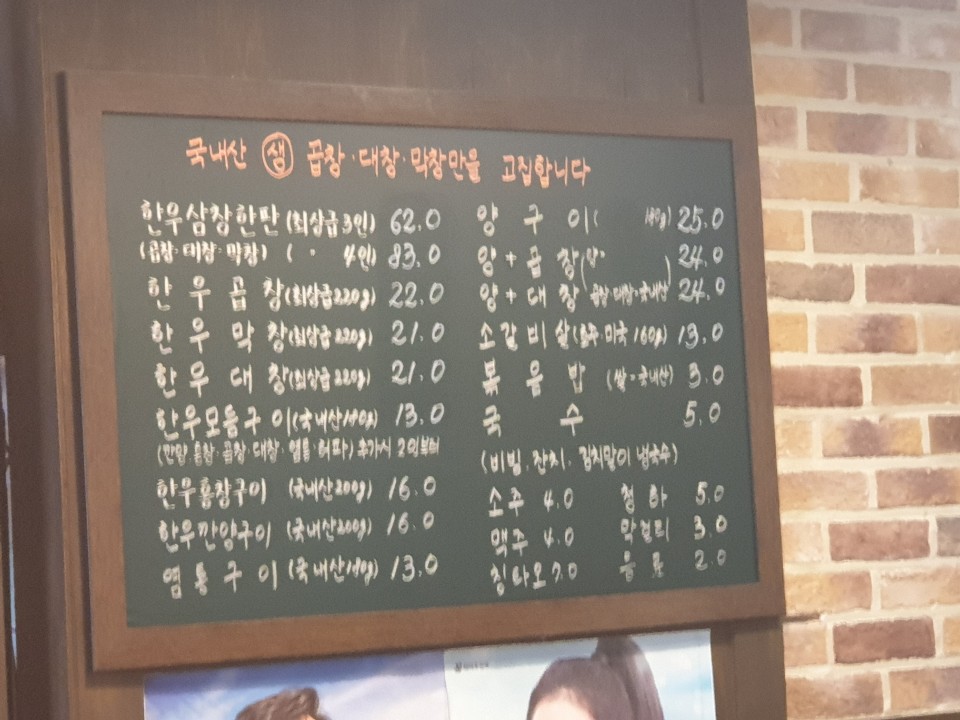 국내산 생 곱창·대창·막창만을 고집합니다
한우삼창한판 (최상급 3인) 62.0
(곱창·대창·막창) ( 〃 4인) 83.0
한우곱창 (최상급 220g) 22.0
한우막창 (최상급 220g) 21.0
한우대창 (최상급 220g) 21.0
한우모듬구이 (국내산 180g) 13.0
곱창·대창·염통 추가시 2인부터
한우홍창구이 (국내산 200g) 16.0
한우깐양구이 (국내산 200g) 16.0
염통구이 (국내산 180g) 13.0
양구이 ( 180g) 25.0
양+곱창 24.0
양+대창 곱창·대창·국내산 24.0
소갈비살 (호주·미국 160g) 13.0
볶음밥 (쌀=국내산) 3.0
국수 5.0
(비빔, 잔치, 김치말이 냉국수)
소주 4.0 청하 5.0
맥주 4.0 막걸리 3.0
칭따오 7.0 음료 2.0